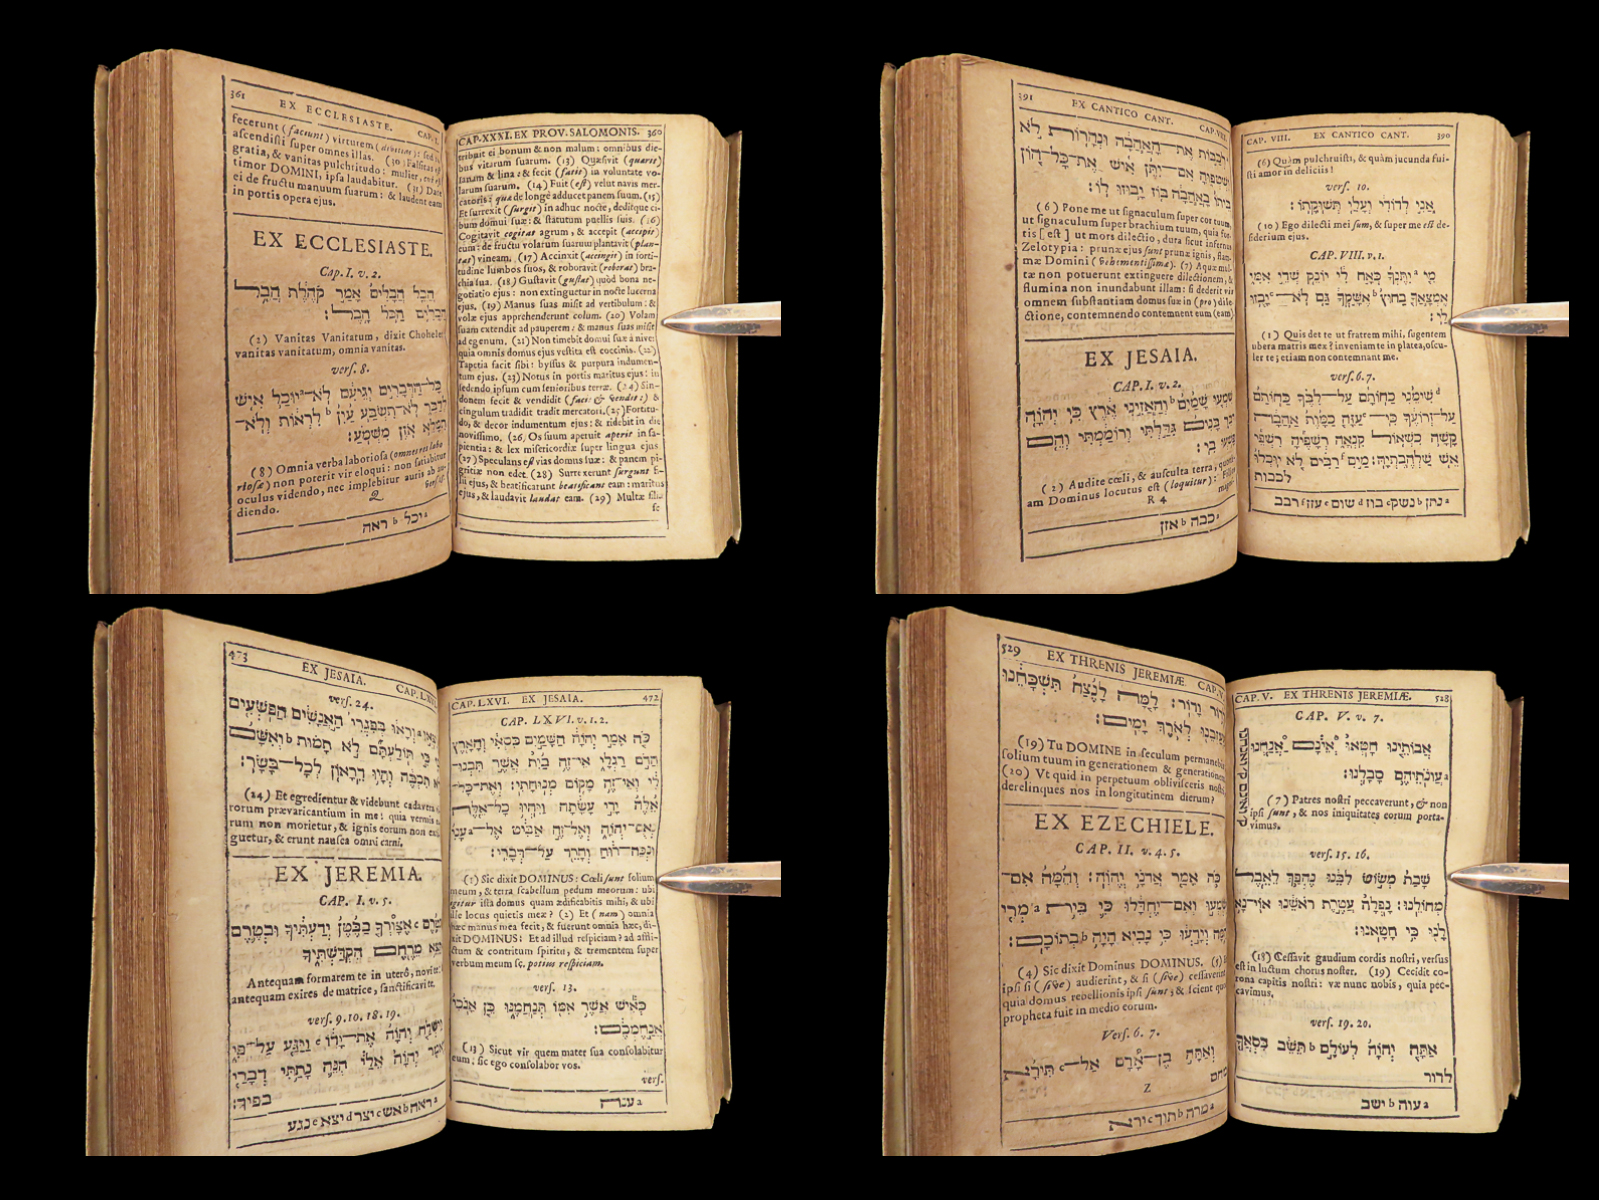 CAP. XXXI. EX PROV. SALOMONIS. 360
tribuit ei bonum & non malum: omnibus die-
bus vitarum suarum. (13) Quæsivit (quærit)
lanam & lina: & fecit (facit) in voluntate vo-
larum suarum. (14) Fuit (est) velut navis mer-
catoris: quæ de longè adducet panem suum. (15)
Et surrexit (surgit) in adhuc nocte, deditque ci-
bum domui suæ: & statutum puellis suis. (16)
Cogitavit cogitat agrum, & accepit (accipit)
eum: de fructu volarum suarum plantavit (plan-
tat) vineam. (17) Accinxit (accingit) in forti-
tudine lumbos suos, & roboravit (roborat) bra-
chia sua. (18) Gustavit (gustat) quòd bona ne-
gotiatio ejus: non extinguetur in nocte lucerna
ejus. (19) Manus suas misit ad verticulum: &
volæ ejus apprehenderunt colum. (20) Volam
suam extendit ad pauperem: & manus suas misit
ad egenum. (21) Non timebit domui suæ à nive:
quia omnis domus ejus vestita est coccinis. (22)
Tapetia facit sibi: byssus & purpura indumen-
tum ejus. (23) Notus in portis maritus ejus: in
sedendo ipsum cum senioribus terræ. (24) Sin-
donem fecit & vendidit (facit & vendit:) &
cingulum tradidit tradit mercatori. (25) Fortitu-
do, & decor indumentum ejus: & ridebit in die
novissimo. (26) Os suum aperuit aperit in sa-
pientia: & lex misericordiæ super lingua ejus
(27) Speculans est vias domus suæ: & panem pi-
gritiæ non edet. (28) Surrexerunt surgunt fi-
lii ejus, & beatificarunt beatificant eam: maritus
ejus, & laudavit laudat eam. (29) Multæ filiæ
fe
361 EX ECCLESIASTE. CAP.
fecerunt (faciunt) virtutem (divitias): & sed tu
ascendisti super omnes illas. (30) Falsitas est
gratia, & vanitas pulchritudo: mulier,
timor DOMINI, ipsa laudabitur. (31) Date
ei de fructu manuum suarum: & laudent eam
in portis opera ejus.
EX ECCLESIASTE.
Cap. I. v. 2.
הֲבֵל הֲבָלִים אָמַר קֹהֶלֶת הֲבֵל
הֲבָלִים הַכֹּל הָבֶל:
(2) Vanitas Vanitatum, dixit Chohelet
vanitas vanitatum, omnia vanitas.
vers. 8.
כָּל־הַדְּבָרִים יְגֵעִים לֹא־יוּכַל אִישׁ
לְדַבֵּר לֹא־תִשְׂבַּע עַיִן b לִרְאוֹת וְלֹא־
תִמָּלֵא אֹזֶן מִשְּׁמֹעַ:
(8) Omnia verba laboriosa (omnes res labo
riosæ) non poterit vir eloqui: non satiabitur
oculus videndo, nec implebitur auris ab au-
diendo.
a יכל b ראה
CAP. VIII. EX CANTICO CANT. 390
(6) Quàm pulchruisti, & quàm jucunda fui-
sti amor in deliciis!
vers. 10.
אֲנִי לְדוֹדִי וְעָלַי תְּשׁוּקָתוֹ:
(10) Ego dilecti mei sum, & super me est de-
siderium ejus.
CAP. VIII. v. 1.
מִי a יִתֶּנְךָ כְּאָח לִי יוֹנֵק שְׁדֵי אִמִּי
אֶמְצָאֲךָ בַחוּץ b אֶשָּׁקְךָ גַּם לֹא־ c יָבֻזוּ
לִי:
(1) Quis det te ut fratrem mihi, sugentem
ubera matris meæ? inveniam te in platea, oscu-
ler te; etiam non contemnant me.
vers. 6. 7.
d שִׂימֵנִי כַחוֹתָם עַל־לִבֶּךָ כַּחוֹתָם
עַל־זְרוֹעֶךָ כִּי־ e עַזָּה כַמָּוֶת אַהֲבָה
קָשָׁה כִשְׁאוֹל קִנְאָה רְשָׁפֶיהָ רִשְׁפֵּי
אֵשׁ שַׁלְהֶבֶתְיָה: מַיִם f רַבִּים לֹא יוּכְלוּ
לְכַבּוֹת
a נתן b נשק c בוז d שום e עזז f רבב
391 EX CANTICO CANT. CAP. VIII.
לְכַבּוֹת אֶת־הָאַהֲבָה וּנְהָרוֹת לֹא
יִשְׁטְפוּהָ אִם־יִתֵּן אִישׁ אֶת־כָּל־הוֹן
בֵּיתוֹ בָּאַהֲבָה בּוֹז יָבוּזוּ לוֹ:
(6) Pone me ut signaculum super cor tuum,
ut signaculum super brachium tuum, quia for-
tis [est] ut mors dilectio, dura sicut infernus
Zelotypia: prunæ ejus sunt prunæ ignis, flam-
mæ Domini (vehementissimæ). (7) Aquæ mul-
tæ non potuerunt extinguere dilectionem, &
flumina non inundabunt illam: si dederit vir
omnem substantiam domus suæ in (pro) dile-
ctione, contemnendo contemnent eum (eam)
EX JESAIA.
CAP. I. v. 2.
שִׁמְעוּ שָׁמַיִם b וְהַאֲזִינִי אֶרֶץ כִּי יְהוָה
דִּבֵּר בָּנִים גִּדַּלְתִּי וְרוֹמַמְתִּי וְהֵם
פָּשְׁעוּ בִי:
(2) Audite cœli, & ausculta terra, quoni-
am Dominus locutus est (loquitur): Filios
R 4
a ככה b אזן
CAP. LXVI. EX JESAIA. 472
CAP. LXVI. v. 1. 2.
כֹּה אָמַר יְהוָה הַשָּׁמַיִם כִּסְאִי וְהָאָרֶץ
הֲדֹם רַגְלָי אֵי־זֶה בַיִת אֲשֶׁר תִּבְנוּ־
לִי וְאֵי־זֶה מָקוֹם מְנוּחָתִי: וְאֶת־כָּל־
אֵלֶּה יָדִי עָשָׂתָה וַיִּהְיוּ כָל־אֵלֶּה
נְאֻם־יְהוָה וְאֶל־זֶה אַבִּיט אֶל־ a עָנִי
וּנְכֵה־רוּחַ וְחָרֵד עַל־דְּבָרִי:
(1) Sic dixit DOMINUS: Cœli sunt solium
meum, & terra scabellum pedum meorum: ubi
igitur ista domus quam ædificabitis mihi, & ubi
iste locus quietis meæ? (2) Et (nam) omnia
hæc manus mea fecit, & fuerunt omnia hæc, di-
xit DOMINUS: Et ad illud respiciam? ad affli-
ctum & contritum spiritu, & trementem super
verbum meum sc. potius respiciam.
vers. 13.
כְּאִישׁ אֲשֶׁר אִמּוֹ תְּנַחֲמֶנּוּ כֵּן אָנֹכִי
אֲנַחֶמְכֶם:
(13) Sicut vir quem mater sua consolabitur
eum: sic ego consolabor vos.
vers.
a ענה
473 EX JESAIA. CAP. LXVI.
vers. 24.
וְיָצְאוּ a וְרָאוּ בְּפִגְרֵי הָאֲנָשִׁים הַפֹּשְׁעִים
בִּי כִּי תוֹלַעְתָּם לֹא תָמוּת b וְאִשָּׁם
לֹא תִכְבֶּה וְהָיוּ דֵרָאוֹן לְכָל־בָּשָׂר:
(24) Et egredientur & videbunt cadavera vi-
rorum prævaricantium in me: quia vermis eo-
rum non morietur, & ignis eorum non extin-
guetur, & erunt nausea omni carni.
EX JEREMIA.
CAP. I. v. 5.
בְּטֶרֶם c אֶצּוֹרְךָ בַבֶּטֶן יְדַעְתִּיךָ וּבְטֶרֶם
תֵּצֵא מֵרֶחֶם הִקְדַּשְׁתִּיךָ
Antequam formarem te in utero, novi te:
antequam exires de matrice, sanctificavi te.
vers. 9. 10. 18. 19.
וַיִּשְׁלַח יְהוָה אֶת־יָדוֹ e וַיַּגַּע עַל־פִּי
וַיֹּאמֶר יְהוָה אֵלַי הִנֵּה נָתַתִּי דְבָרַי
בְּפִיךָ:
a ראה b אש c יצר d יצא e נגע
CAP. V. EX THRENIS JEREMIÆ. 528
CAP. V. v. 7.
אֲבוֹתֵינוּ חָטְאוּ וְאֵינָם וַאֲנַחְנוּ
a עֲוֺנֹתֵיהֶם סָבָלְנוּ:
(7) Patres nostri peccaverunt, & non
ipsi sunt, & nos iniquitates eorum porta-
vimus.
vers. 15. 16.
שָׁבַת מְשׂוֹשׂ לִבֵּנוּ נֶהְפַּךְ לְאֵבֶל
מְחוֹלֵנוּ: נָפְלָה עֲטֶרֶת רֹאשֵׁנוּ אוֹי־נָא
לָנוּ כִּי חָטָאנוּ:
(18) Cessavit gaudium cordis nostri, versus
est in luctum chorus noster. (19) Cecidit co-
rona capitis nostri: væ nunc nobis, quia pec-
cavimus.
vers. 19. 20.
אַתָּה יְהוָה לְעוֹלָם b תֵּשֵׁב כִּסְאֲךָ
לְדוֹר
a עוה b ישב
529 EX THRENIS JEREMIÆ. CAP. V.
לְדוֹר וָדוֹר: לָמָּה לָנֶצַח תִּשְׁכָּחֵנוּ
תַּעַזְבֵנוּ לְאֹרֶךְ יָמִים:
(19) Tu DOMINE in seculum permanebis
solium tuum in generationem & generationem
(20) Vt quid in perpetuum oblivisceris nostri
derelinques nos in longitudinem dierum?
EX EZECHIELE.
CAP. II. v. 4. 5.
כֹּה אָמַר אֲדֹנָי יְהוִֹה: וְהֵמָּה אִם־
יִשְׁמְעוּ וְאִם־יֶחְדָּלוּ כִּי בֵּית a מְרִי
הֵמָּה וְיָדְעוּ כִּי נָבִיא הָיָה b בְתוֹכָם:
(4) Sic dixit Dominus DOMINUS. (5) Et
ipsi si (sive) audierint, & si (sive) cessaverint
quia domus rebellionis ipsi sunt; & scient quod
propheta fuit in medio eorum.
Vers. 6. 7.
וְאַתָּה בֶן־אָדָם אַל־ c תִּירָא
מֵהֶם
Z
a מרה b תוך c ירא